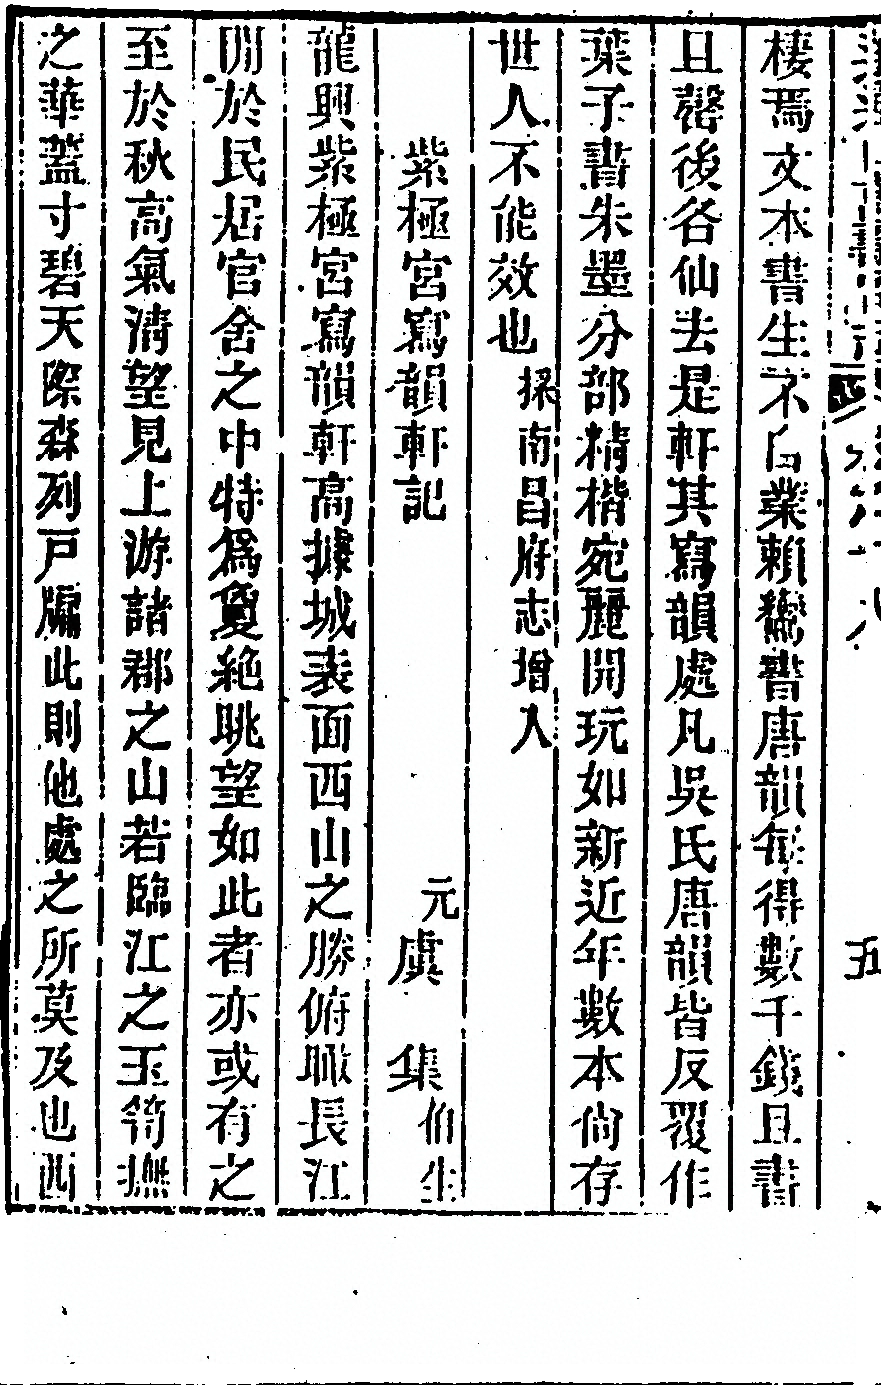 五
棲焉文本書生不自業賴鬻書唐韻每得數千錢且書
且罄後各仙去是軒其寫韻處凡吳氏唐韻皆反覆作
葉子書朱墨分部精楷宛麗開玩如新近年數本尙存
世人不能效也採南昌府志增入
紫極宮寫韻軒記 元虞集伯生
龍興紫極宮寫韻軒高據城表面西山之勝俯瞰長江
閒於民居官舍之中特爲夐絶眺望如此者亦或有之
至於秋高氣淸望見上游諸郡之山若臨江之玉笥撫
之華蓋寸碧天際森列戸牖此則他處之所莫及也西